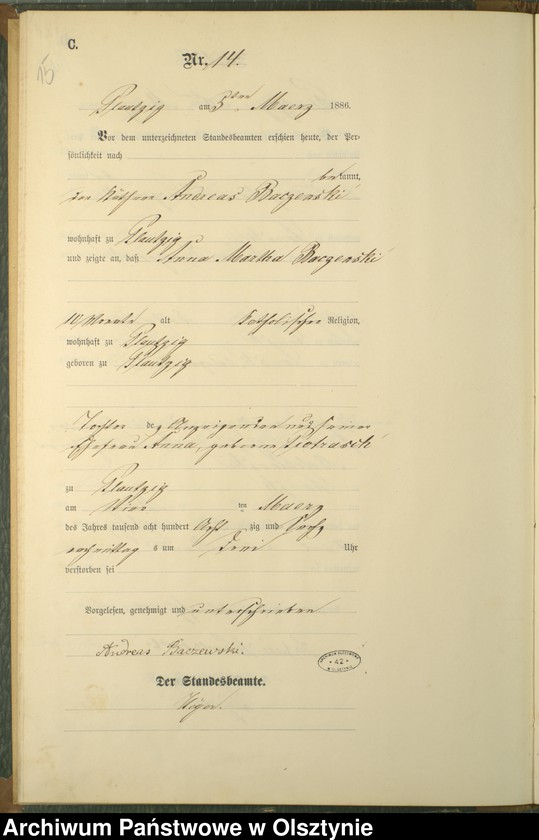 C.
15
Nr. 14.
Plautzig am 5ten Maerz 1886.
Vor dem unterzeichneten Standesbeamten erschien heute, der Per-
sönlichkeit nach
bekannt,
der Käthner Andreas Baczewski
wohnhaft zu Plautzig
und zeigte an, daß Anna Martha Baczewski
10 Monate alt katholischer Religion,
wohnhaft zu Plautzig
geboren zu Plautzig
Tochter des Anzeigenden und seiner
Ehefrau Anna, geborene
zu Plautzig
am Vier ten Maerz
des Jahres tausend acht hundert Acht zig und Sechs
nachmittag s um Drei Uhr
verstorben sei
Vorgelesen, genehmigt und unterschrieben
Andreas Baczewski.
Der Standesbeamte.
42
Archiwum Państwowe w Olsztynie